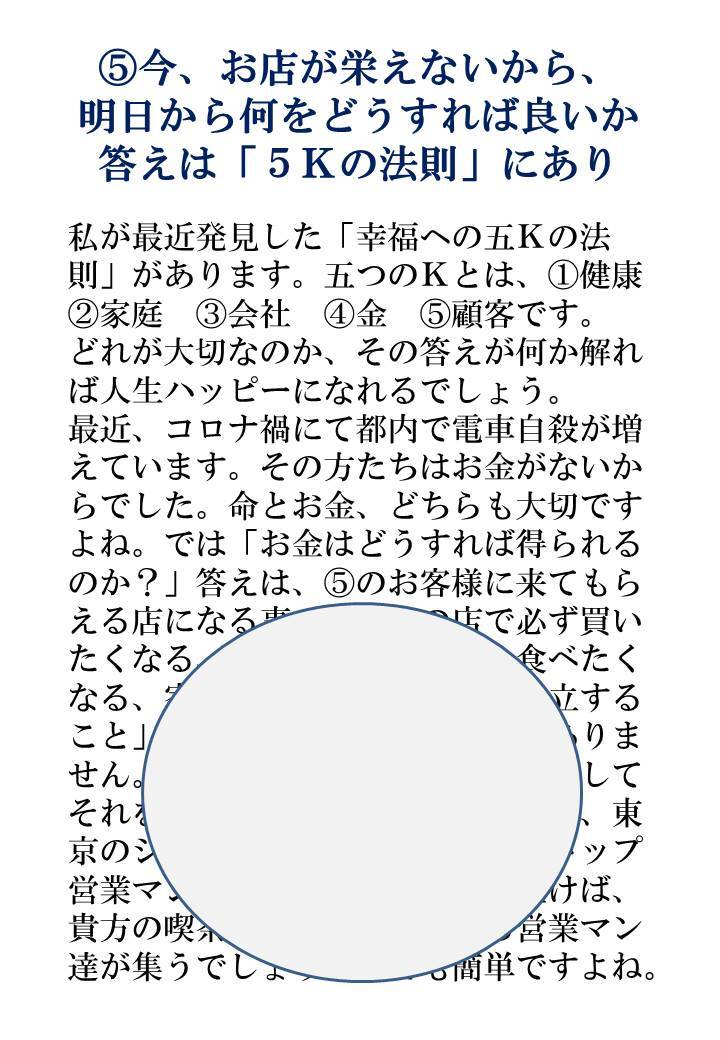 ⑤今、お店が栄えないから、
明日から何をどうすれば良いか
答えは「５Ｋの法則」にあり
私が最近発見した「幸福への五Ｋの法
則」があります。五つのＫとは、①健康
②家庭　③会社　④金　⑤顧客です。
どれが大切なのか、その答えが何か解れ
ば人生ハッピーになれるでしょう。
最近、コロナ禍にて都内で電車自殺が増
えています。その方たちはお金がないか
らでした。命とお金、どちらも大切です
よね。では「お金はどうすれば得られる
のか？」答えは、⑤のお客様に来てもら
える店になる の店で必ず買い
たくなる 食べたく
なる、 立する
こと」 りま
せん。 して
それ 、東
京の ップ
営業マン けば、
貴方の喫茶 営業マン
達が集うでしょ 簡単ですよね。